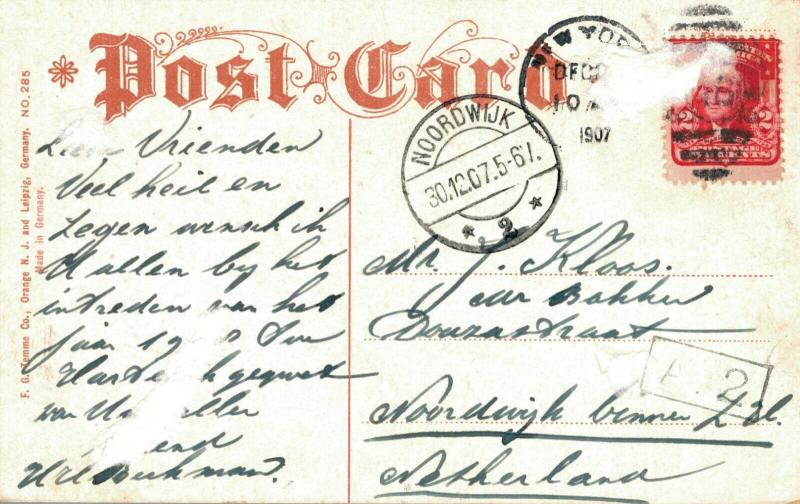 Post Card
NEW YOR
DEC
10 A
1907
NOORDWIJK
30.12.07.5-6N.
2
2 2
CENTS
F. G. Temme Co., Orange N. J. and Leipzig, Germany. NO. 285
Made in Germany.
Vrienden
Veel heil en
zegen wensch ik
U allen by het
intreden van het
jaar 19
van U
end
Mr. J. Kloos.
Bakker
Douzastraat
Noordwijk binnen Z.H.
Netherland
2